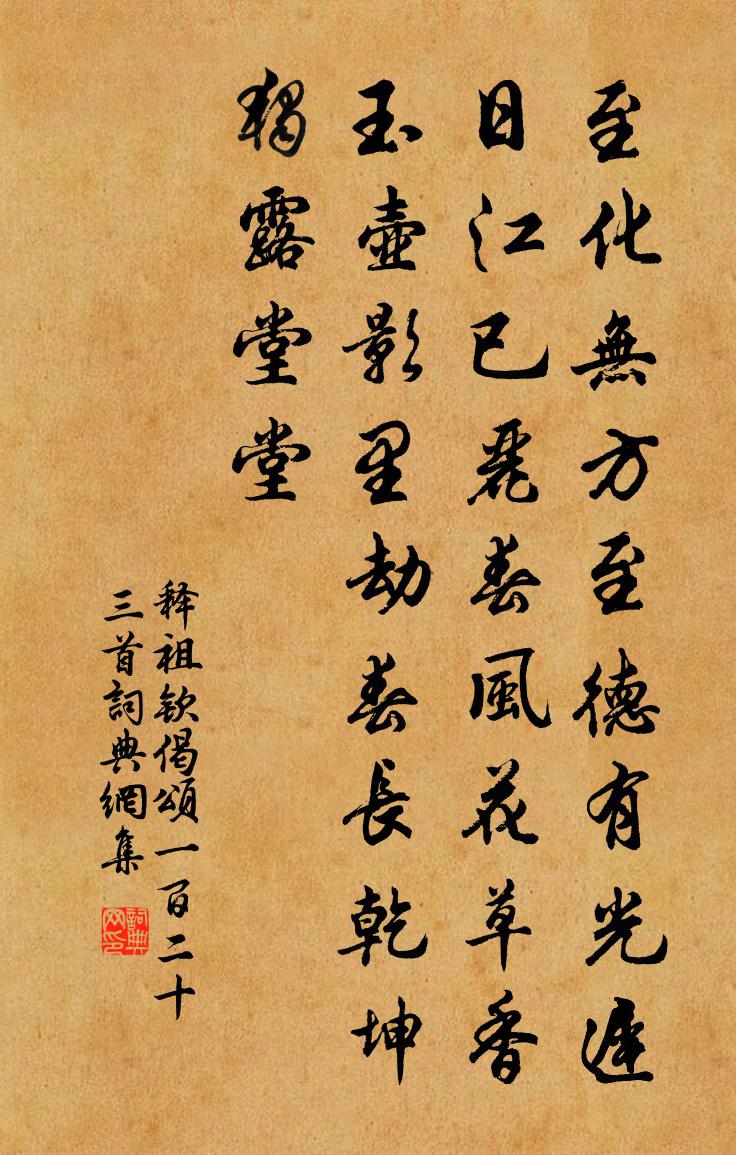 至化無方至德有光遲
日江已麗春風花草香
玉壺影里劫春長乾坤
獨露堂堂
释祖欽偈頌一百二十
三首詞典網集
詞典网印